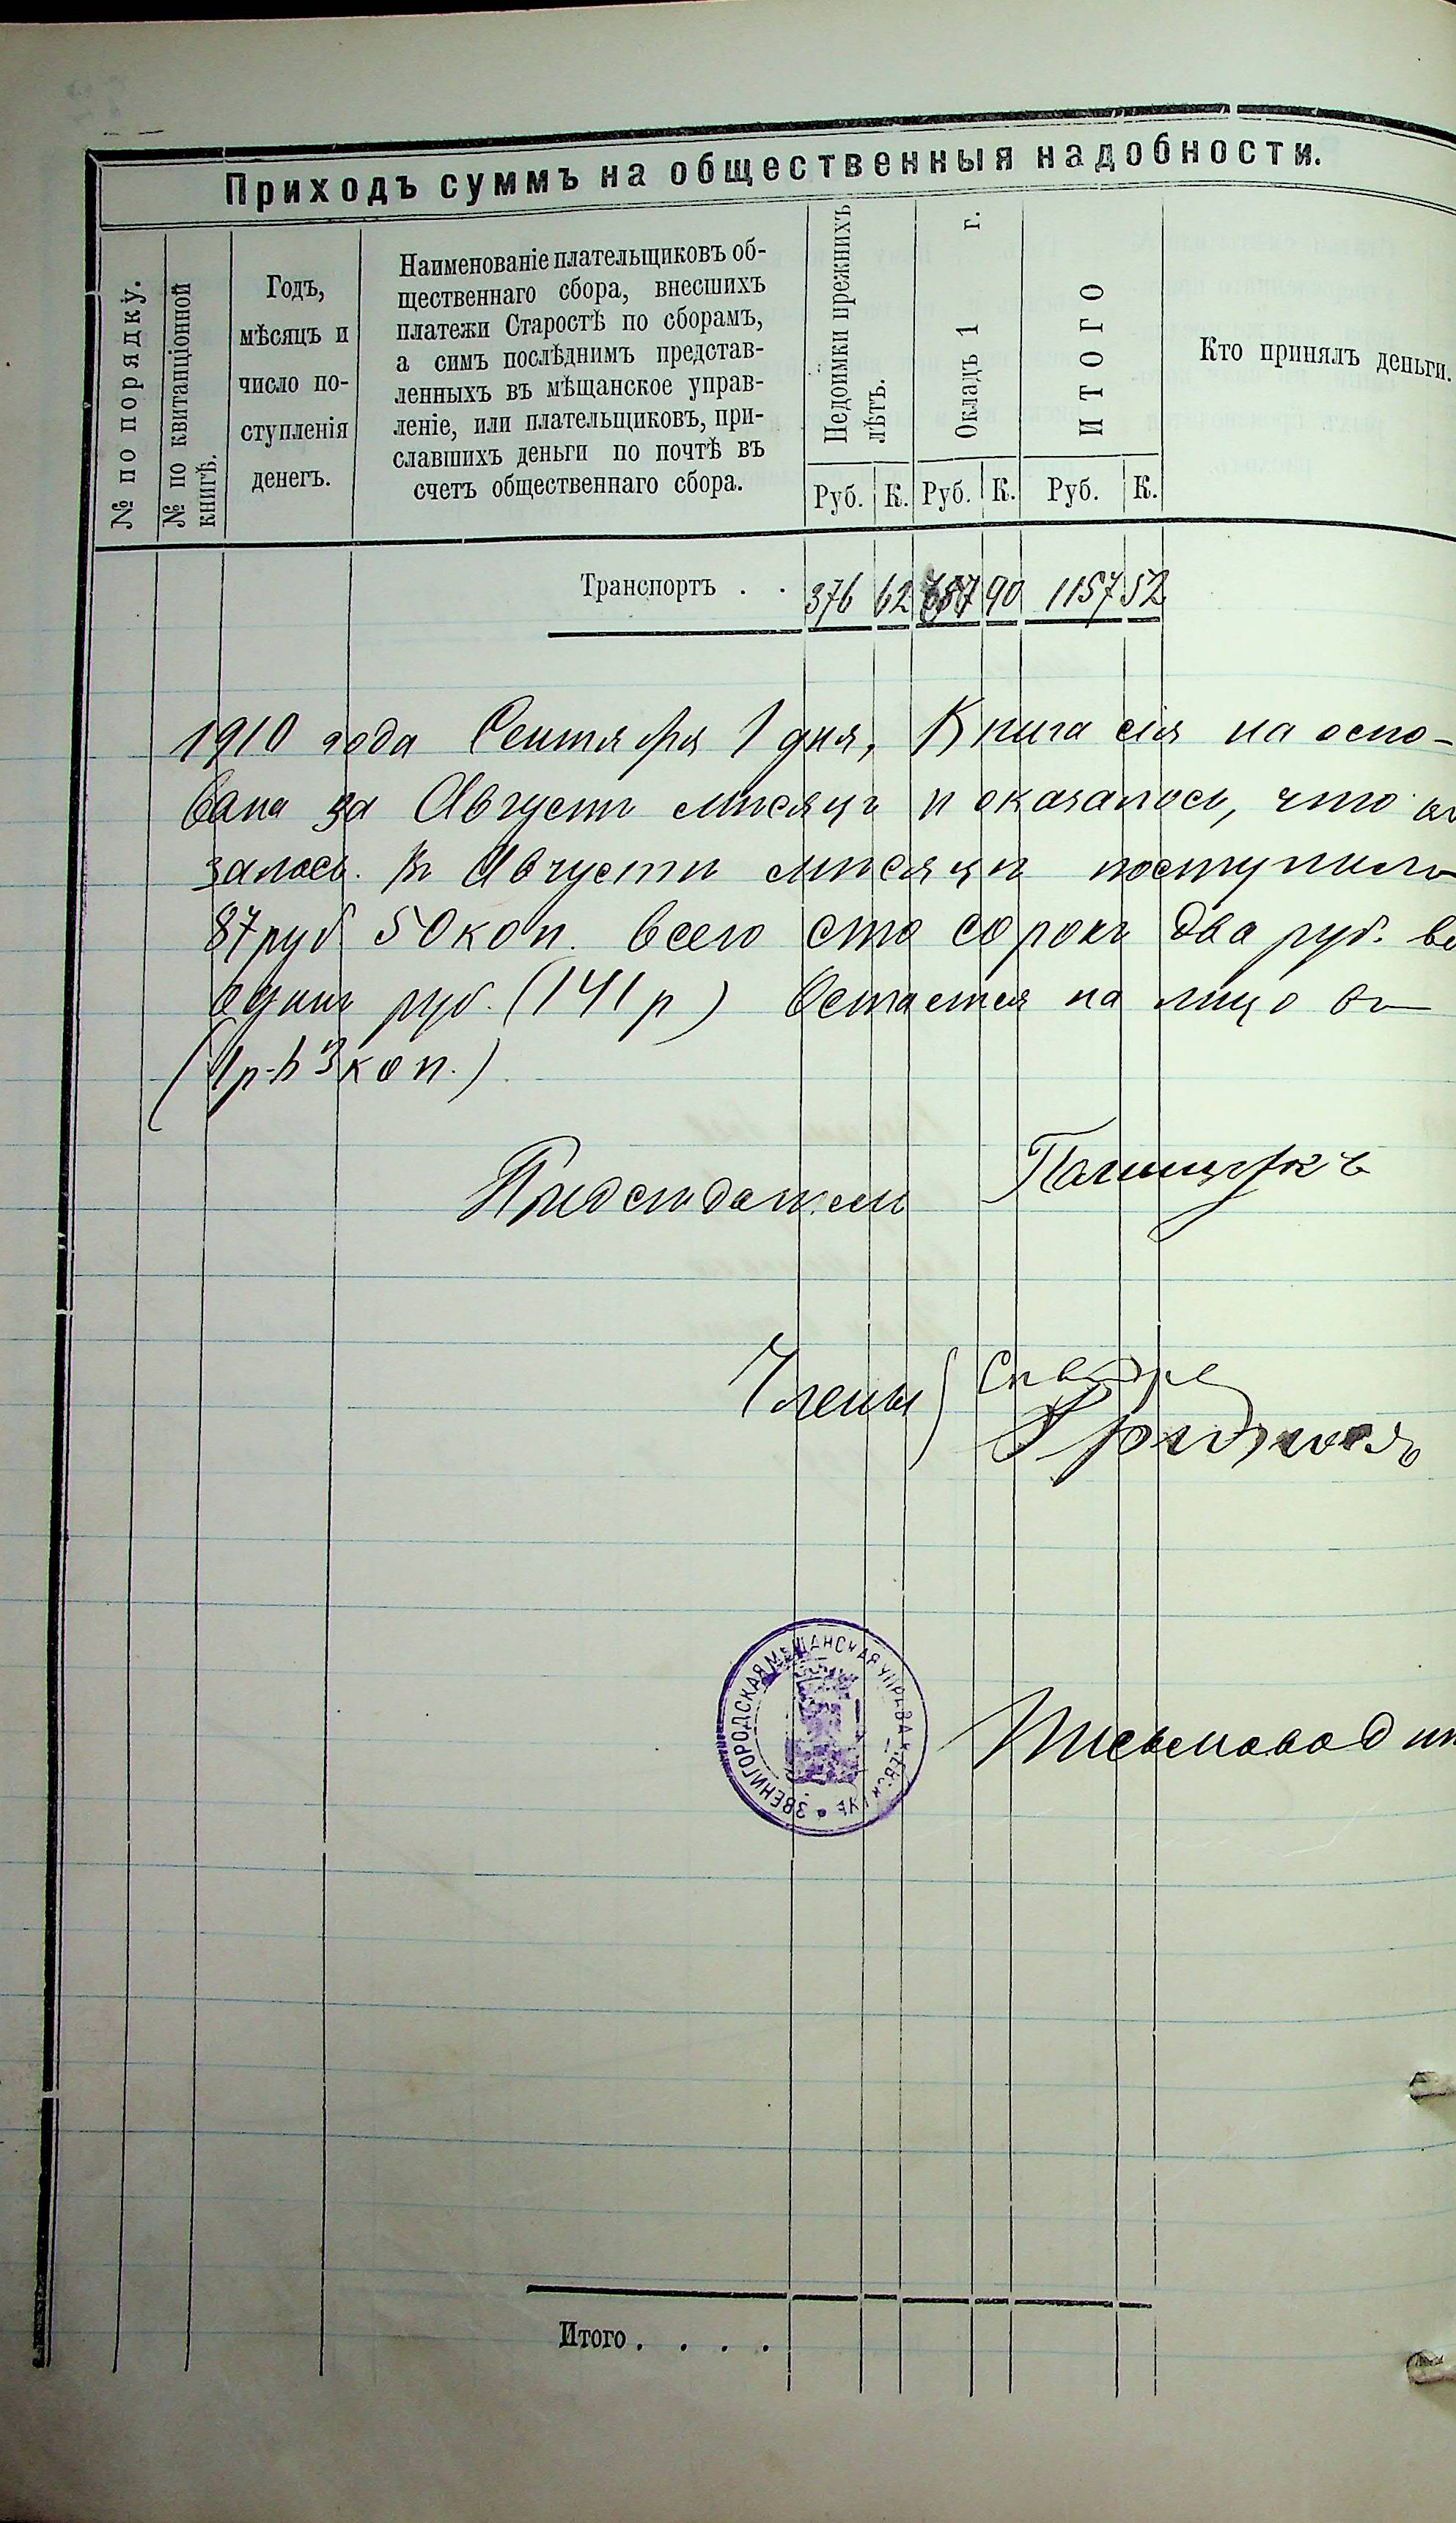 Приходъ суммъ на общественныя надобности.
№ по порядку.
№ по квитанціонной
книгѣ.
Годъ,
мѣсяцъ и
число по-
ступленія
денегъ.
Наименованіе плательщиковъ об-
щественнаго сбора, внесшихъ
платежи Старостѣ по сборамъ,
а симъ послѣднимъ представ-
ленныхъ въ мѣщанское управ-
леніе, или плательщиковъ, при-
славшихъ деньги по почтѣ въ
счетъ общественнаго сбора.
Недоимки прежнихъ
лѣтъ.
Окладъ 1 г.
ИТОГО
Кто принялъ деньги.
Руб. К. Руб. К. Руб. К.
Транспортъ . . 376 62 90 1157 52
1910 года Сентября 1 дня, Книга сія на осно-
за Августъ мѣсяцъ и оказалось, что
залось. Въ Августѣ мѣсяцѣ поступило
87 руб 50 коп. всего сто сорокъ два руб.
одинъ руб. (141 р) Остается на лицо
коп.)
Предсѣдатель
Члены
ЗВЕНИГОРОДСКАЯ МѢЩАНСКАЯ УПРАВА КІЕВСК
Письмоводит
Итого . . . .